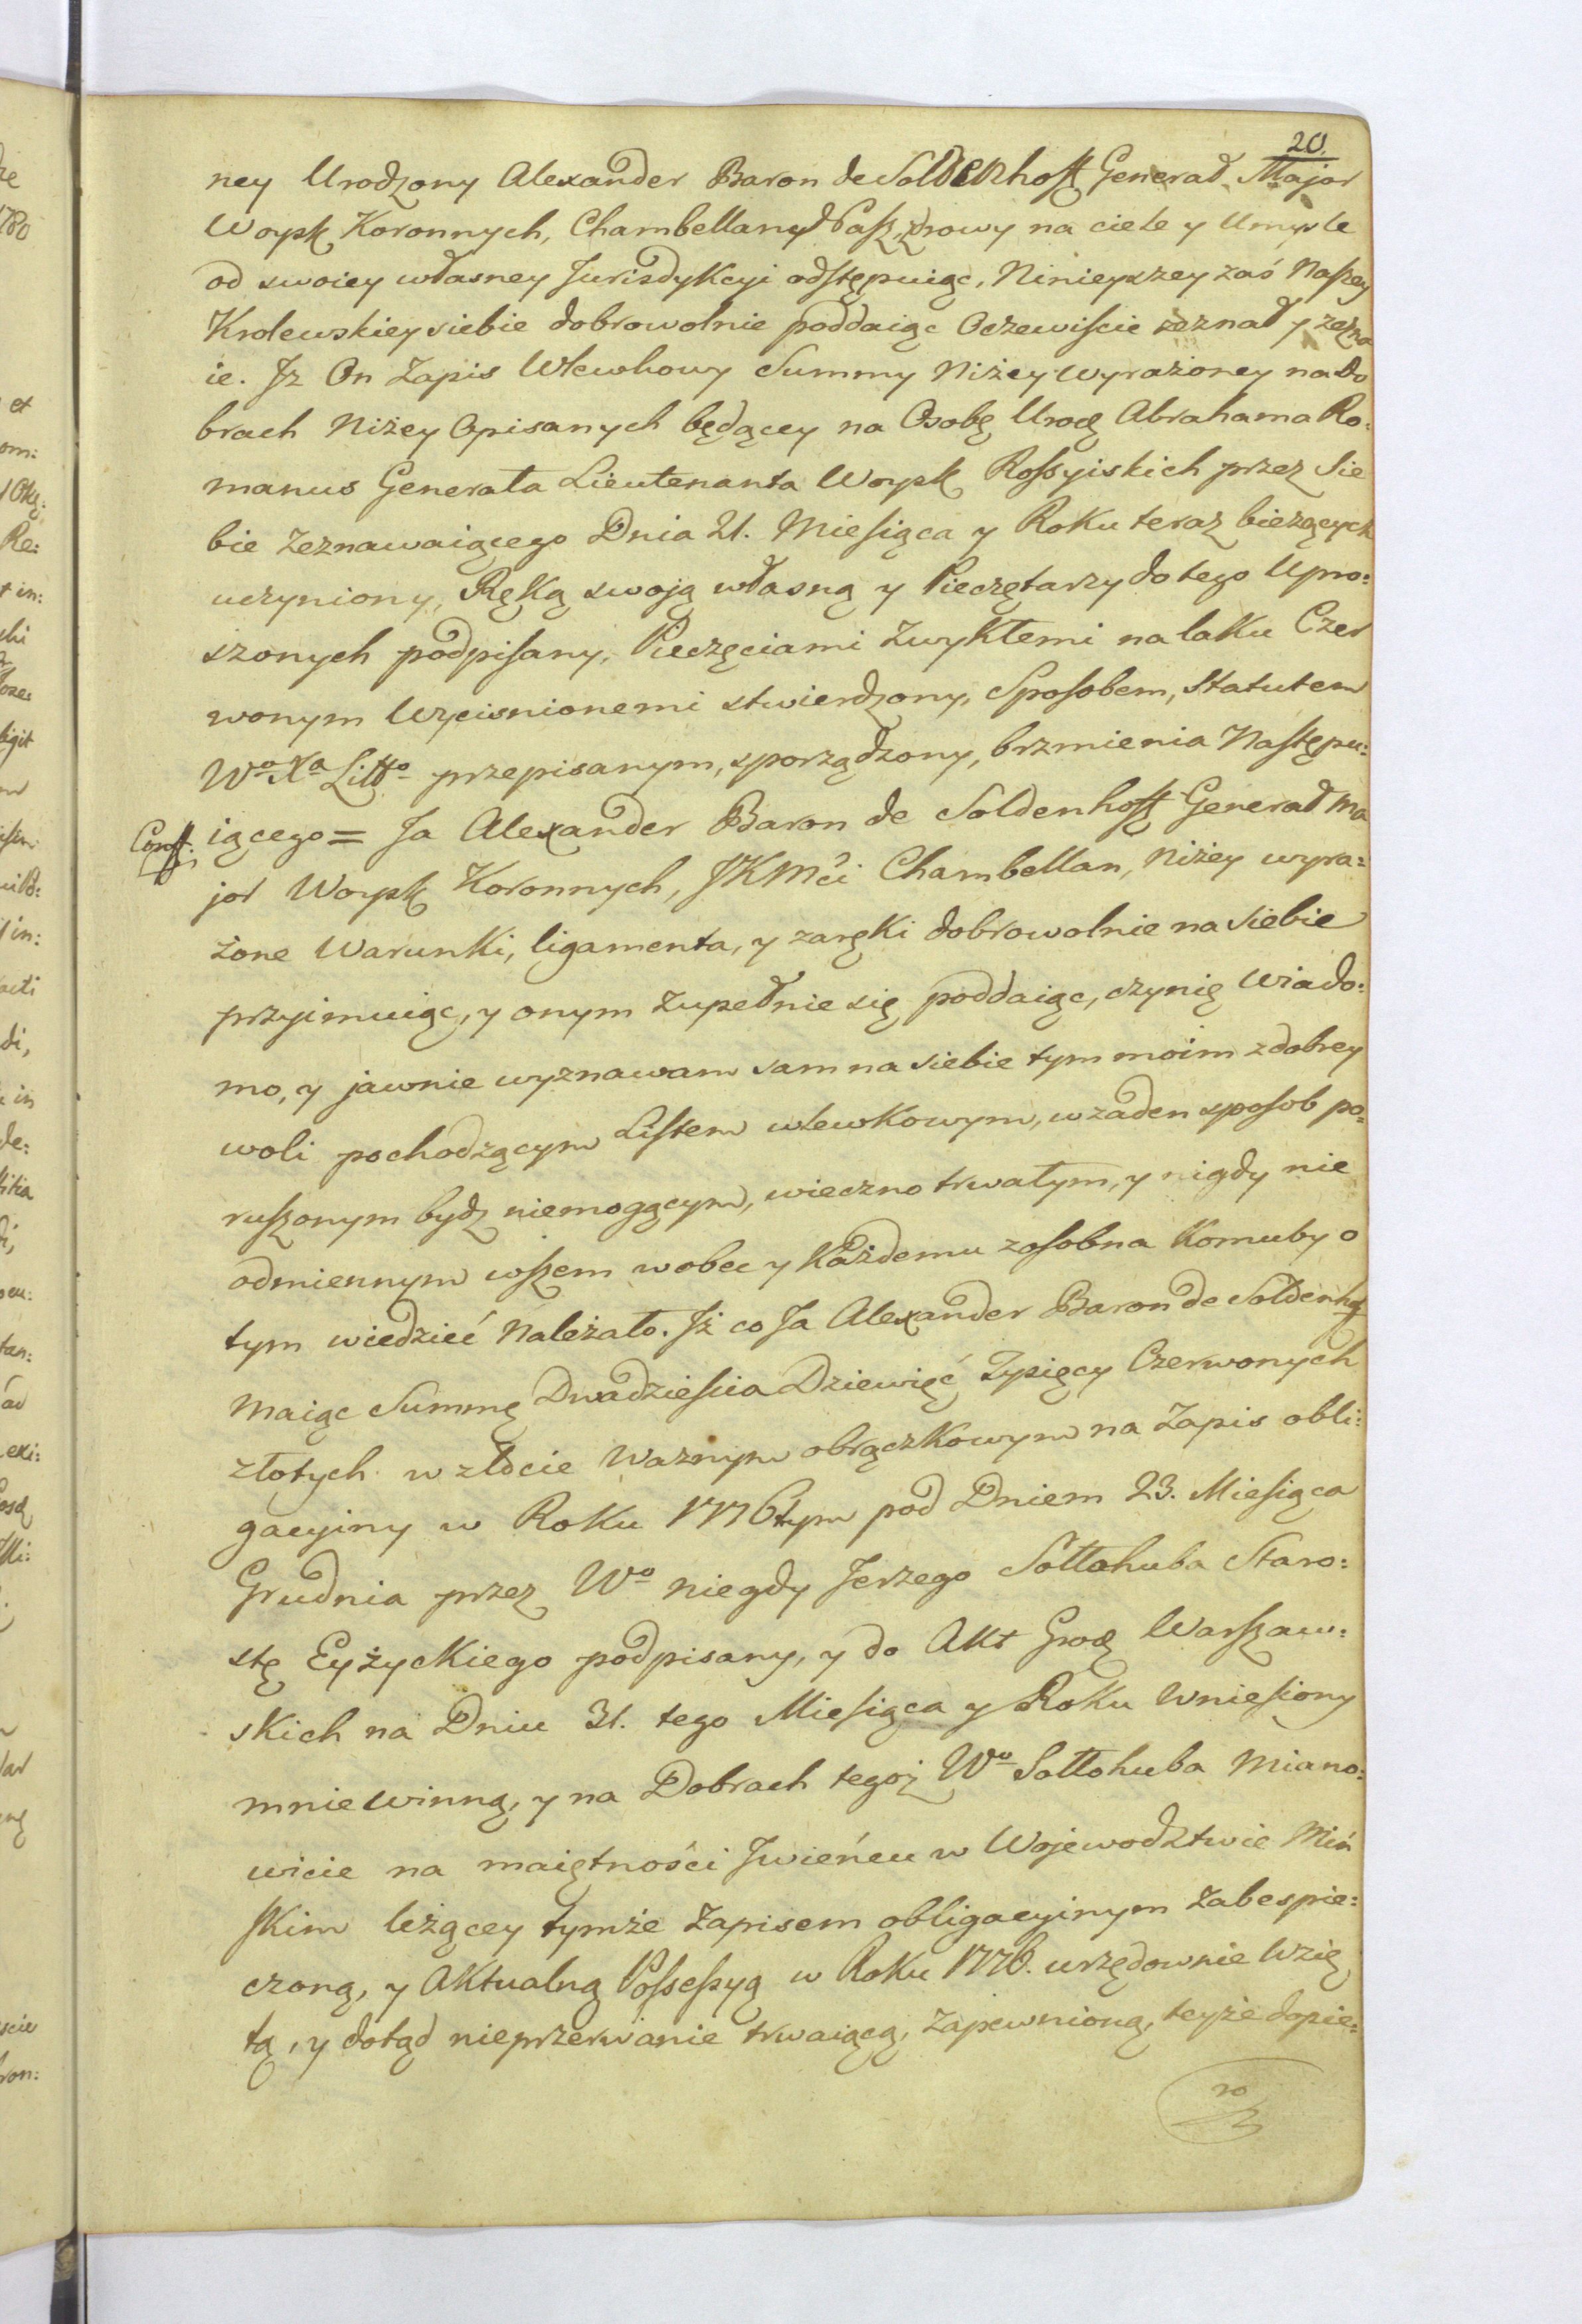 20.
ney Urodzony Alexander Baron de Soldenhoff Generał Major
Woysk Koronnych, Chambellany Nasz, zdrowy na ciele y Umysle
od swoiey własney Jurisdykcyi odstępuiąc, Ninieyszey zaś Naszey
Krolewskiey siebie dobrowolnie poddaiąc Oczewiscie zeznał y zezna
ie. Jz On Zapis Wlewkowy Summy Niżey wyrażoney na do
brach Niżey Opisanych będącey na Osobę Urodz Abrahama Ro:
manus Generała Lieutenanta Woysk Rossyiskich przez Sie
bie Zeznawaiącego Dnia 21. Miesiąca y Roku teraz bieżących
uczyniony, Ręką swoją własną y Pieczętarzy do tego Upro:
szonych podpisany, Pieczęciami Zwykłemi na laku Czer
wonym Wycisnionemi stwierdzony, Sposobem, Statutem
Wo Xa Litto przepisanym, sporządzony, brzmienia Następu:
iącego = Ja Alexander Baron de Soldenhoff Generał Ma
jor Woysk Koronnych, JKMci Chambellan, Niżey wyra:
żone Warunki, ligamenta, y zaręki dobrowolnie na siebie
przyimuiąc, y onym Zupełnie się poddaiąc, czynię Wiado:
mo, y jawnie wyznawam sam na siebie tym moim z dobrey
woli pochodzącym Listem wlewkowym, w żaden sposob po:
ruszonym bydz niemogącym, wieczno trwałym, y nigdy nie
odmiennym wszem wobec y Każdemu zosobna Komuby o
tym wiedzieć Należało. Jż co Ja Alexander Baron de Soldenhoff
Maiąc Summę Dwadziescia Dziewięć Tysięcy Czerwonych
złotych w złocie Waznym obrączkowym na Zapis obli:
gacyiny w Roku 1776tym pod Dniem 23. Miesiąca
Grudnia przez Wo niegdy Jerzego Sołłohuba Staro:
stę Eyżyckiego podpisany, y do Akt Grodz Warszaw:
skich na Dniu 31. tego Miesiąca y Roku Wniesiony
mnie winną, y na Dobrach tegoż Wo Sołłohuba Miano:
wicie na maiętności Jwieńcu w Wojewodztwie Miń
skim leżącey tymże Zapisem obligacyinym Zabespie:
czoną, y Aktualną Possessyą w Roku 1776. urzędownie Wzię
tą, y dotąd nieprzerwanie trwaiącą, Zapewnioną, teyże dopie:
ro